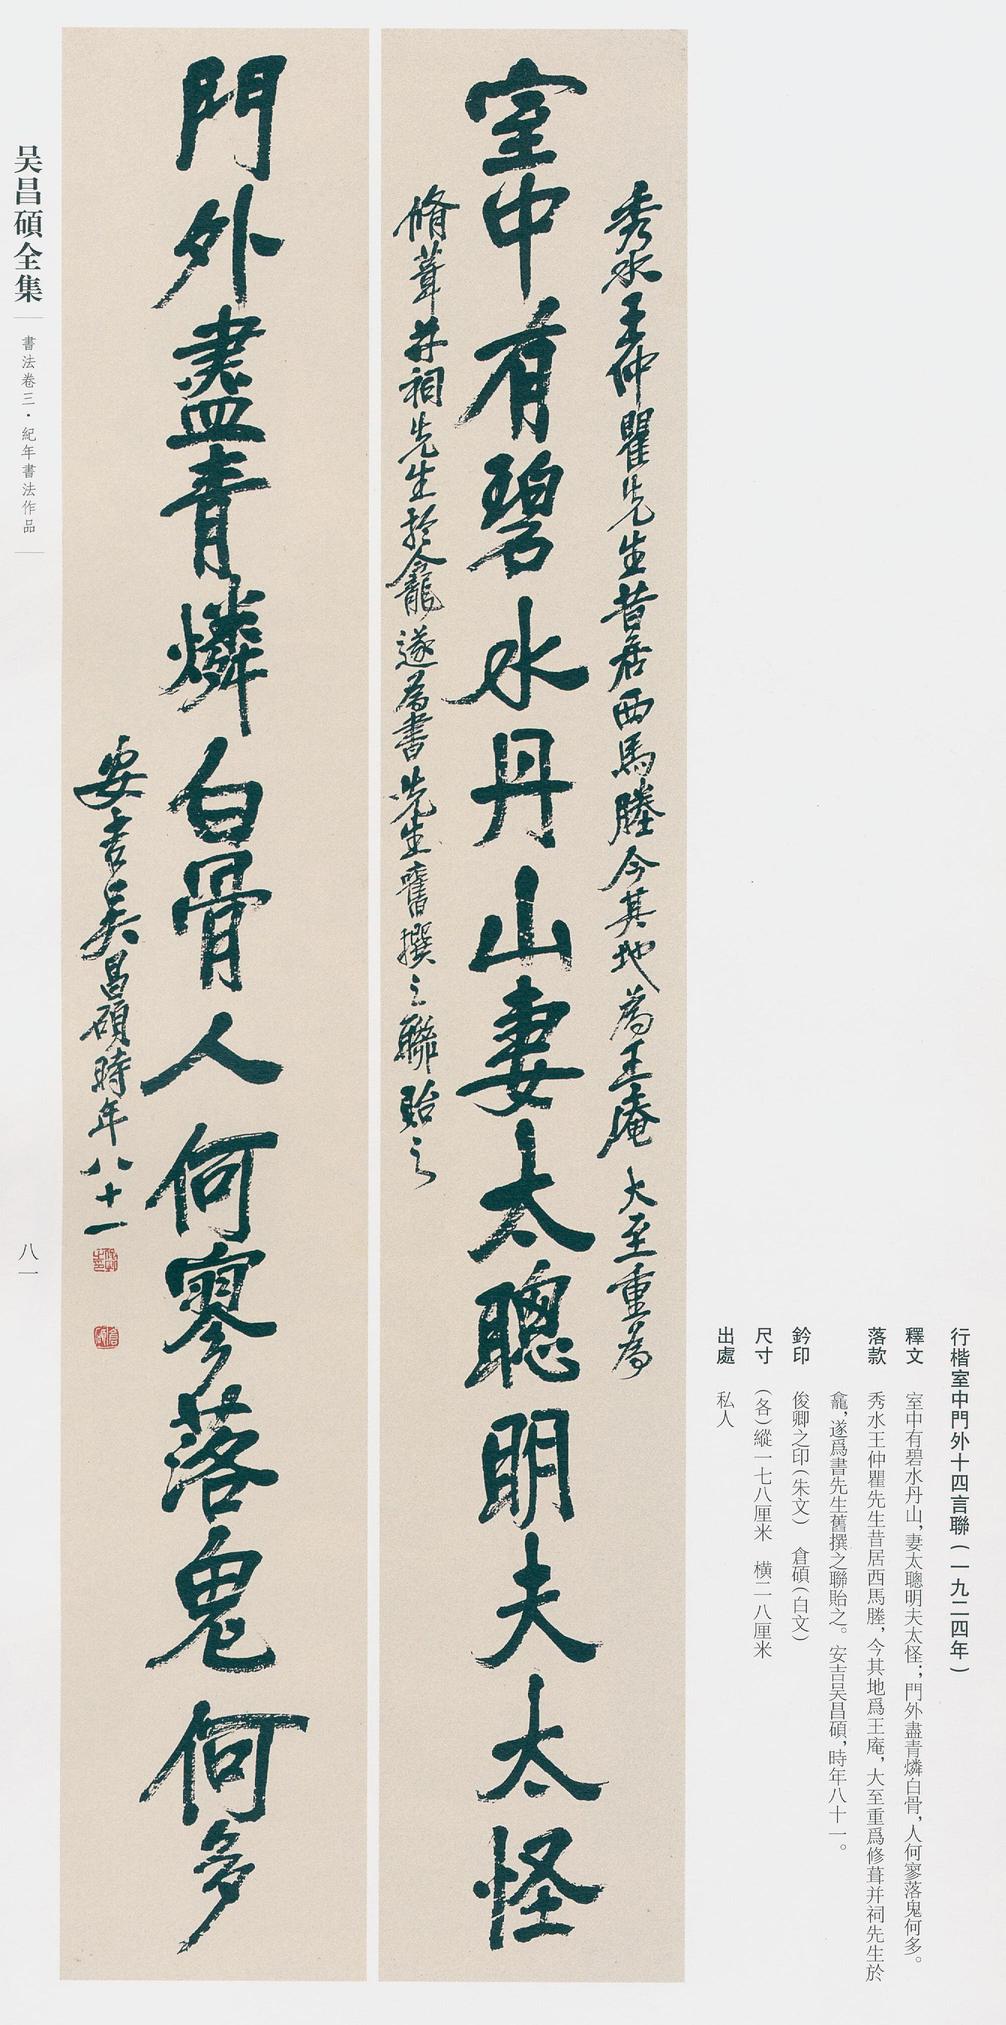 室中有碧水丹山妻太聰明夫太怪
秀水王仲瞿先生昔居西馬塍今其地為王庵大至重為
脩葺并祠先生於龕遂為書先生舊撰之聯貽之
門外盡青燐白骨人何寥落鬼何多
安吉吴昌碩時年八十一
行楷室中門外十四言聯(一九二四年)
釋文 室中有碧水丹山,妻太聰明夫太怪;門外盡青燐白骨,人何寥落鬼何多。
落款 秀水王仲瞿先生昔居西馬塍,今其地爲王庵,大至重爲修葺并祠先生於
龕,遂爲書先生舊撰之聯貽之。安吉吴昌碩,時年八十一。
鈐印 俊卿之印(朱文) 倉碩(白文)
尺寸 (各)縱一七八厘米 橫二八厘米
出處 私人
吴昌碩全集
書法卷三·紀年書法作品
八一